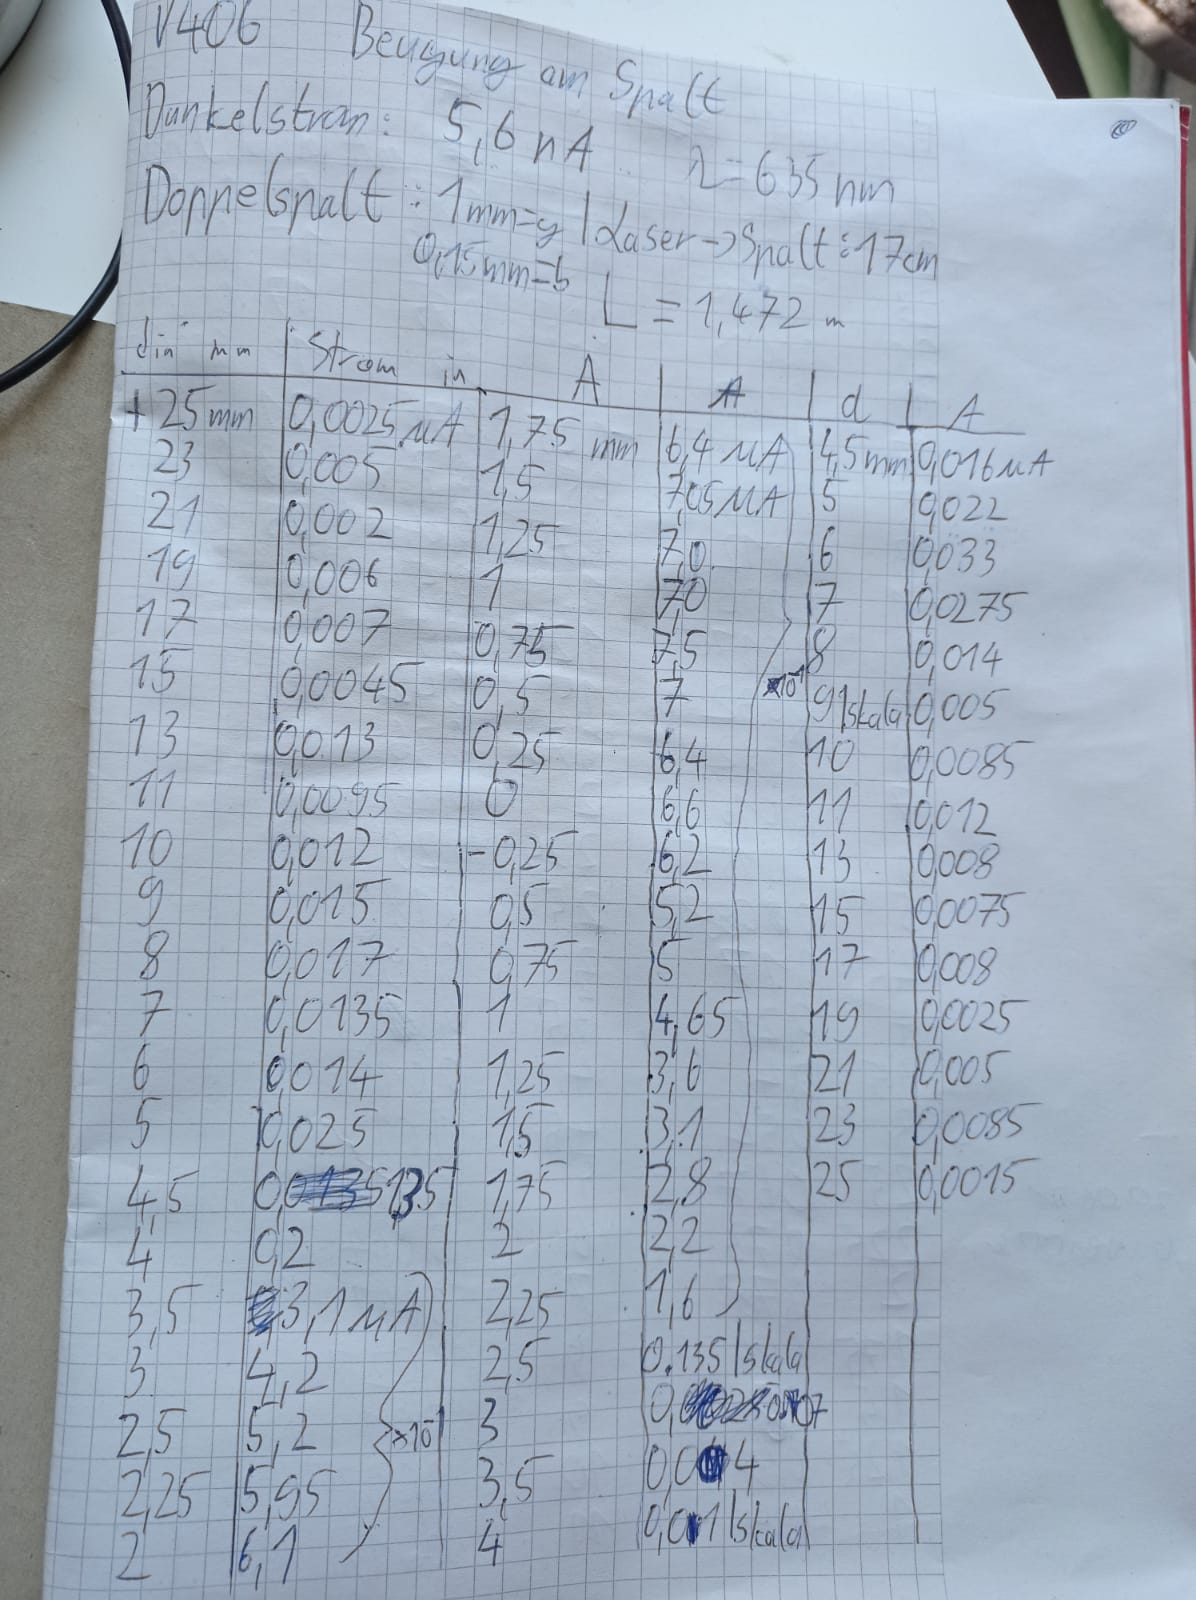 V406 Beugung am Spalt
Dunkelstrom: 5,6 nA λ=635 nm
Doppelspalt: 1mm=g | Laser→Spalt: 17cm
0,15mm=b L = 1,472 m
d in mm | Strom in A | A | d | A
+25mm | 0,0025 μA | 1,75 mm | 6,4 μA | 4,5mm | 0,016 μA
23 | 0,005 | 1,5 | 7,05 μA | 5 | 0,022
21 | 0,002 | 1,25 | 7,0 | 6 | 0,033
19 | 0,006 | 1 | 7,0 | 7 | 0,0275
17 | 0,007 | 0,75 | 7,5 | 8 | 0,014
15 | 0,0045 | 0,5 | 7 | ×10⁻¹ | 9 | skala | 0,005
13 | 0,013 | 0,25 | 6,4 | 10 | 0,0085
11 | 0,0095 | 0 | 6,6 | 11 | 0,012
10 | 0,012 | -0,25 | 6,2 | 13 | 0,008
9 | 0,015 | 0,5 | 5,2 | 15 | 0,0075
8 | 0,017 | 0,75 | 5 | 17 | 0,008
7 | 0,0135 | 1 | 4,65 | 19 | 0,0025
6 | 0,014 | 1,25 | 3,6 | 21 | 0,005
5 | 0,025 | 1,5 | 3,1 | 23 | 0,0085
4,5 | 0,135 | 1,75 | 2,8 | 25 | 0,0015
4 | 0,2 | 2 | 2,2
3,5 | 3,1 μA | 2,25 | 1,6
3 | 4,2 | 2,5 | 0.135 | skala
2,5 | 5,2 | ×10⁻¹ | 3
2,25 | 5,95 | 3,5 | 0,04
2 | 6,1 | 4 | 0,01 | skala